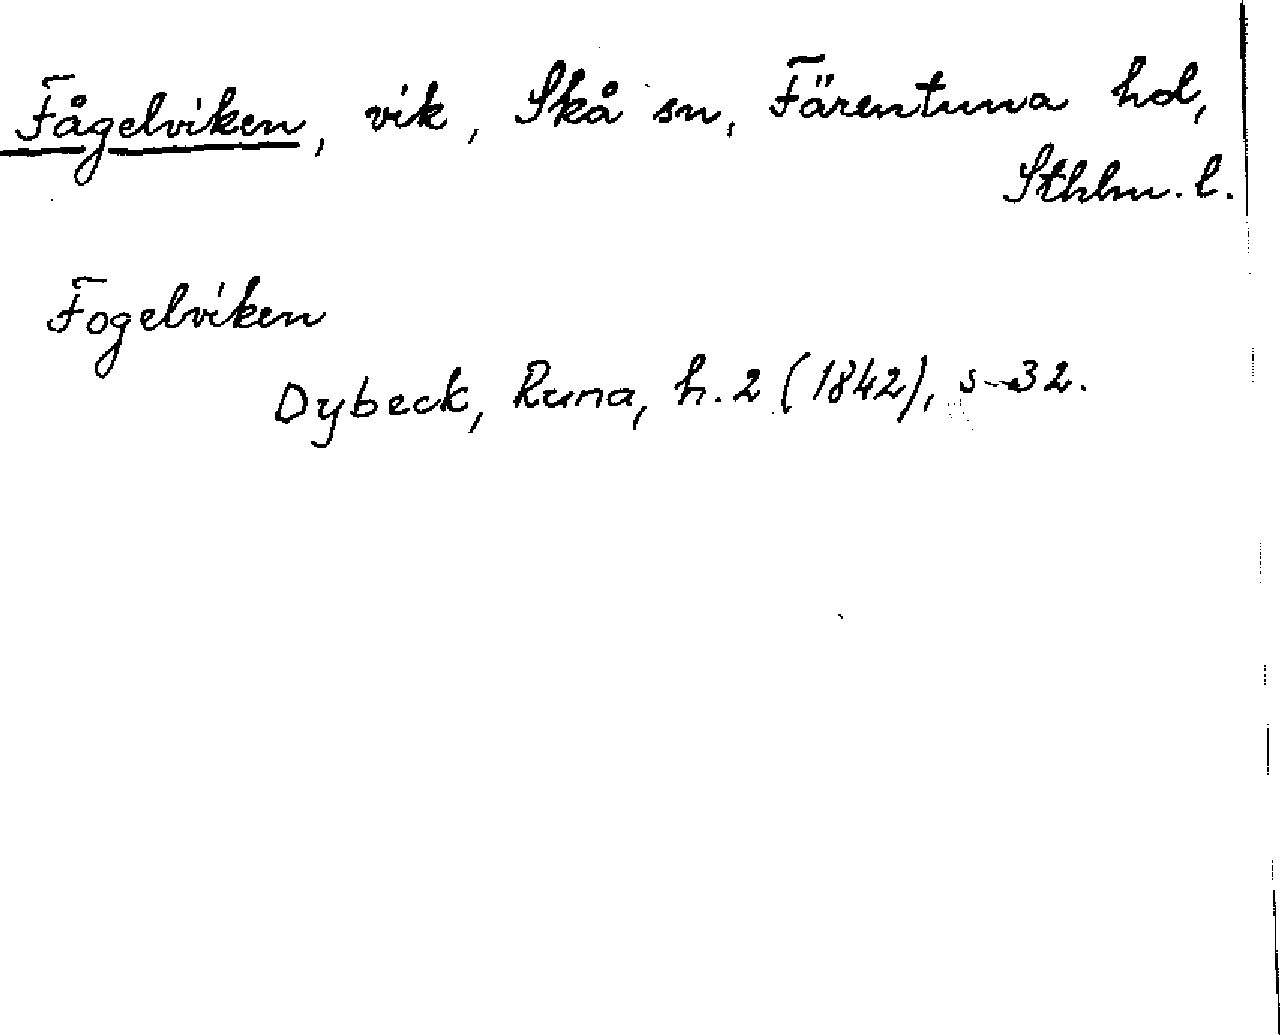 Fågelviken, vik, Skå sn, Färentuna hd,
Sthlm. l.
Fogelviken
Dybeck, Runa, h. 2 (1842), s. 32.